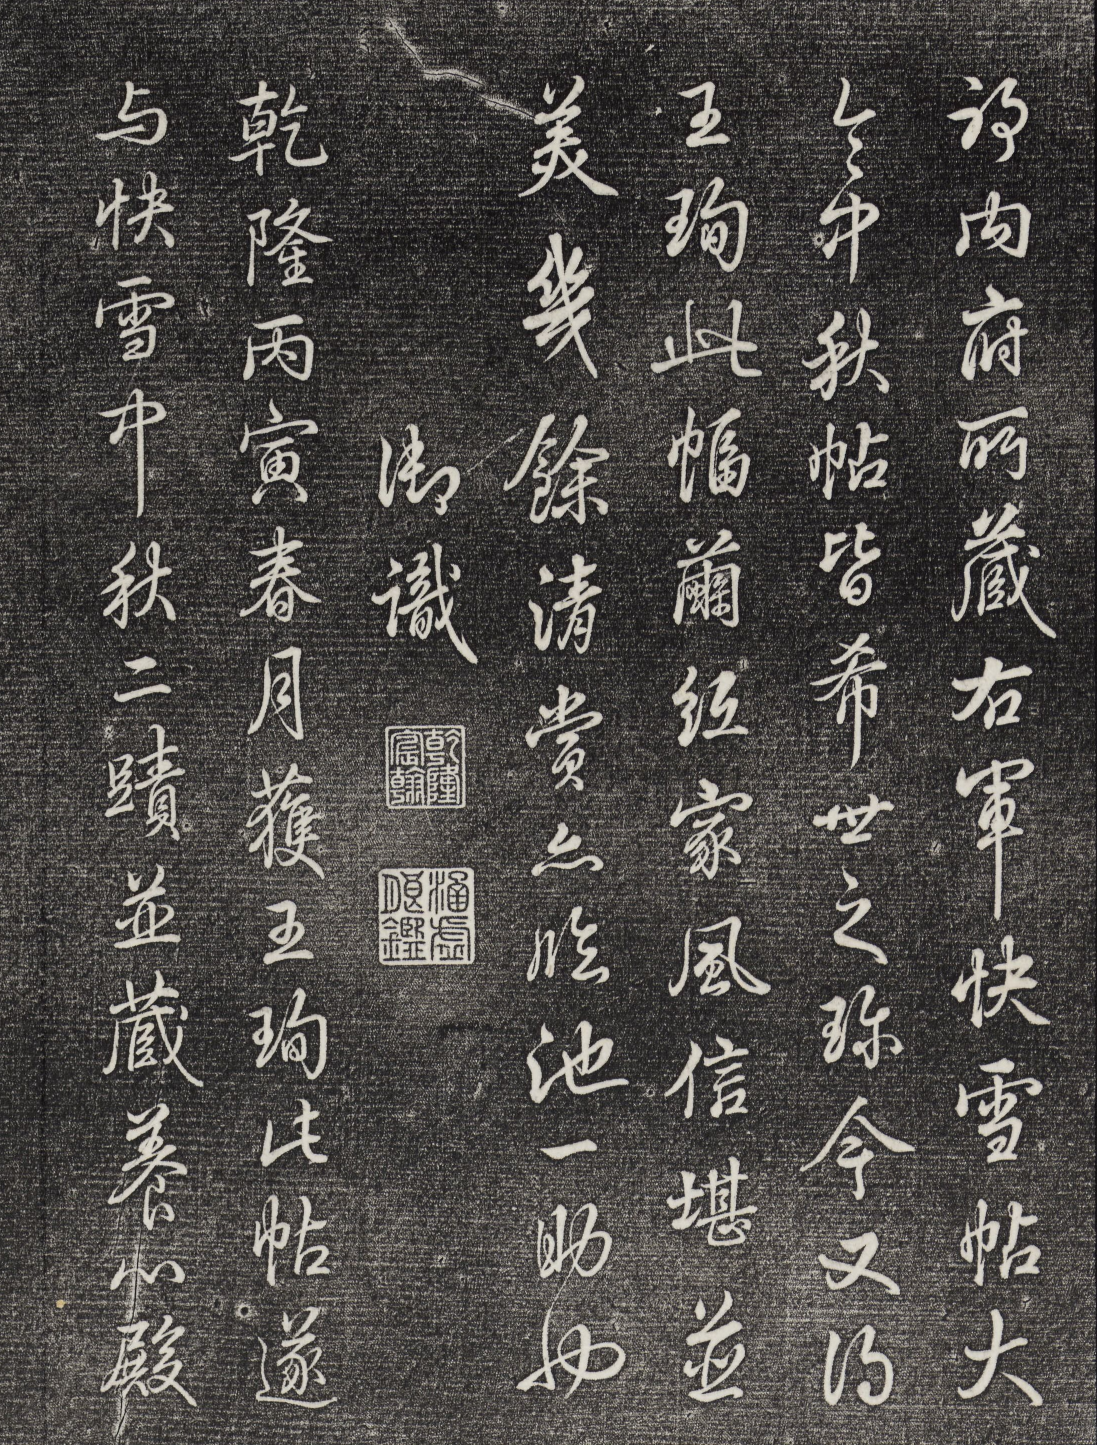 耶内府所藏右軍快雪帖大
令中秋帖皆希世之珎今又得
王珣此幅繭紙家風信堪並
美幾餘清賞亦臨池一助也
御識
乾隆宸翰
涵虛朗鑑
乾隆丙寅春月獲王珣此帖遂
与快雪中秋二蹟並藏養心殿